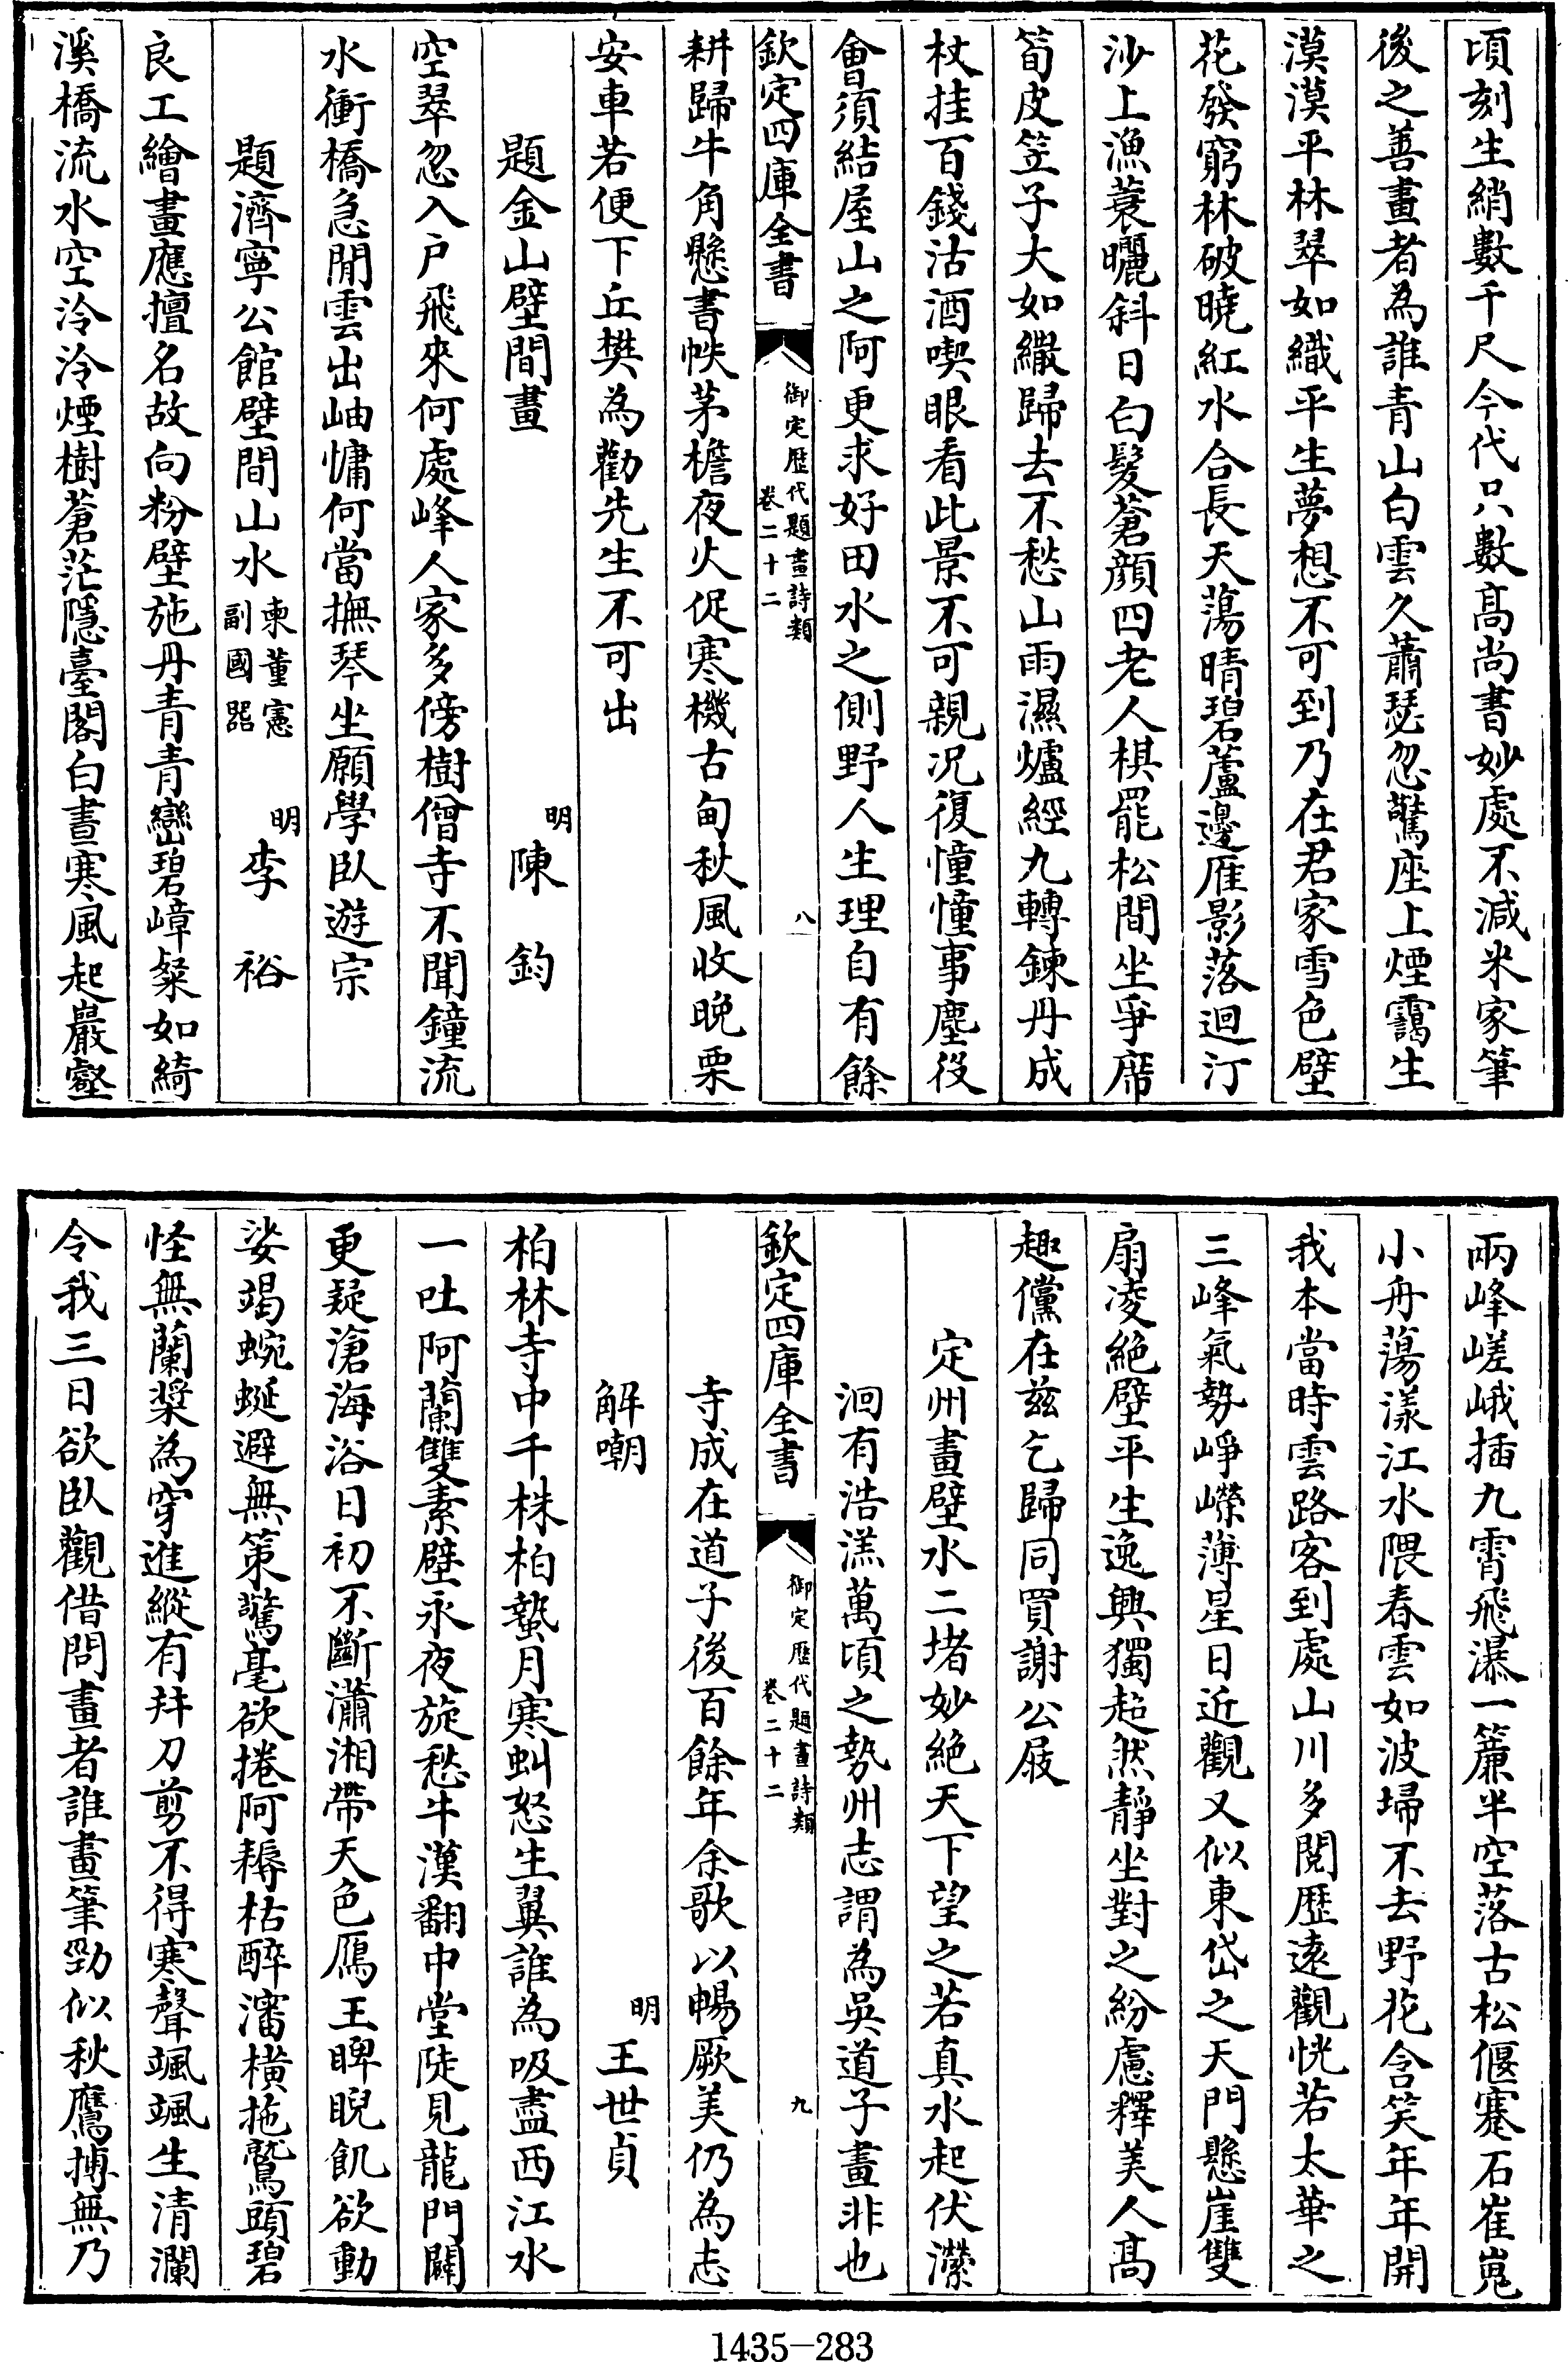 頃刻生綃數千尺今代只數髙尚書妙處不減米家筆
後之善畫者為誰青山白雲久蕭瑟忽驚座上煙靄生
漠漠平林翠如織平生夢想不可到乃在君家雪色壁
花發窮林破曉紅水合長天蕩晴碧蘆邊雁影落迴汀
沙上漁蓑曬斜日白髮蒼顔四老人棋罷松間坐爭席
筍皮笠子大如繖歸去不愁山雨濕爐經九轉鍊丹成
杖挂百錢沽酒喫眼看此景不可親況復憧憧事塵役
會須結屋山之阿更求好田水之側野人生理自有餘
欽定四庫全書
御定歴代題畫詩類
卷二十二
八
耕歸牛角懸書帙茅檐夜火促寒機古甸秋風收晚栗
安車若便下丘樊為勸先生不可出
題金山壁間畫 明 陳鈞
空翠忽入戸飛來何處峰人家多傍樹僧寺不聞鐘流
水衝橋急閒雲出岫慵何當撫琴坐願學臥遊宗
題濟寧公館壁間山水 柬董憲副國器 明 李裕
良工繪畫應擅名故向粉壁施丹青青巒碧嶂粲如綺
溪橋流水空泠泠煙樹蒼茫隱臺閣白晝寒風起巖壑
兩峰嵯峨插九霄飛瀑一簾半空落古松偃蹇石崔嵬
小舟蕩漾江水隈春雲如波埽不去野花含笑年年開
我本當時雲路客到處山川多閱歴逺觀恍若太華之
三峰氣勢崢嶸薄星日近觀又似東岱之天門懸崖雙
扇凌絶壁平生逸興獨超然靜坐對之紛慮釋美人髙
趣儻在兹乞歸同買謝公屐
定州畫壁水二堵妙絶天下望之若真水起伏瀠
洄有浩淼萬頃之勢州志謂為吳道子畫非也
欽定四庫全書
御定歴代題畫詩類
卷二十二
九
寺成在道子後百餘年余歌以暢厥美仍為志
解嘲 明 王世貞
柏林寺中千株柏蟄月寒虯怒生翼誰為吸盡西江水
一吐阿蘭雙素壁永夜旋愁牛漢翻中堂陡見龍門闢
更疑滄海浴日初不斷瀟湘帶天色鴈王睥睨飢欲動
娑竭蜿蜒避無策驚毫欲捲阿耨枯醉瀋橫拖鷲頭碧
怪無蘭槳為穿進縱有并刀剪不得寒聲颯颯生清瀾
令我三日欲臥觀借問畫者誰畫筆勁似秋鷹摶無乃
1435-283